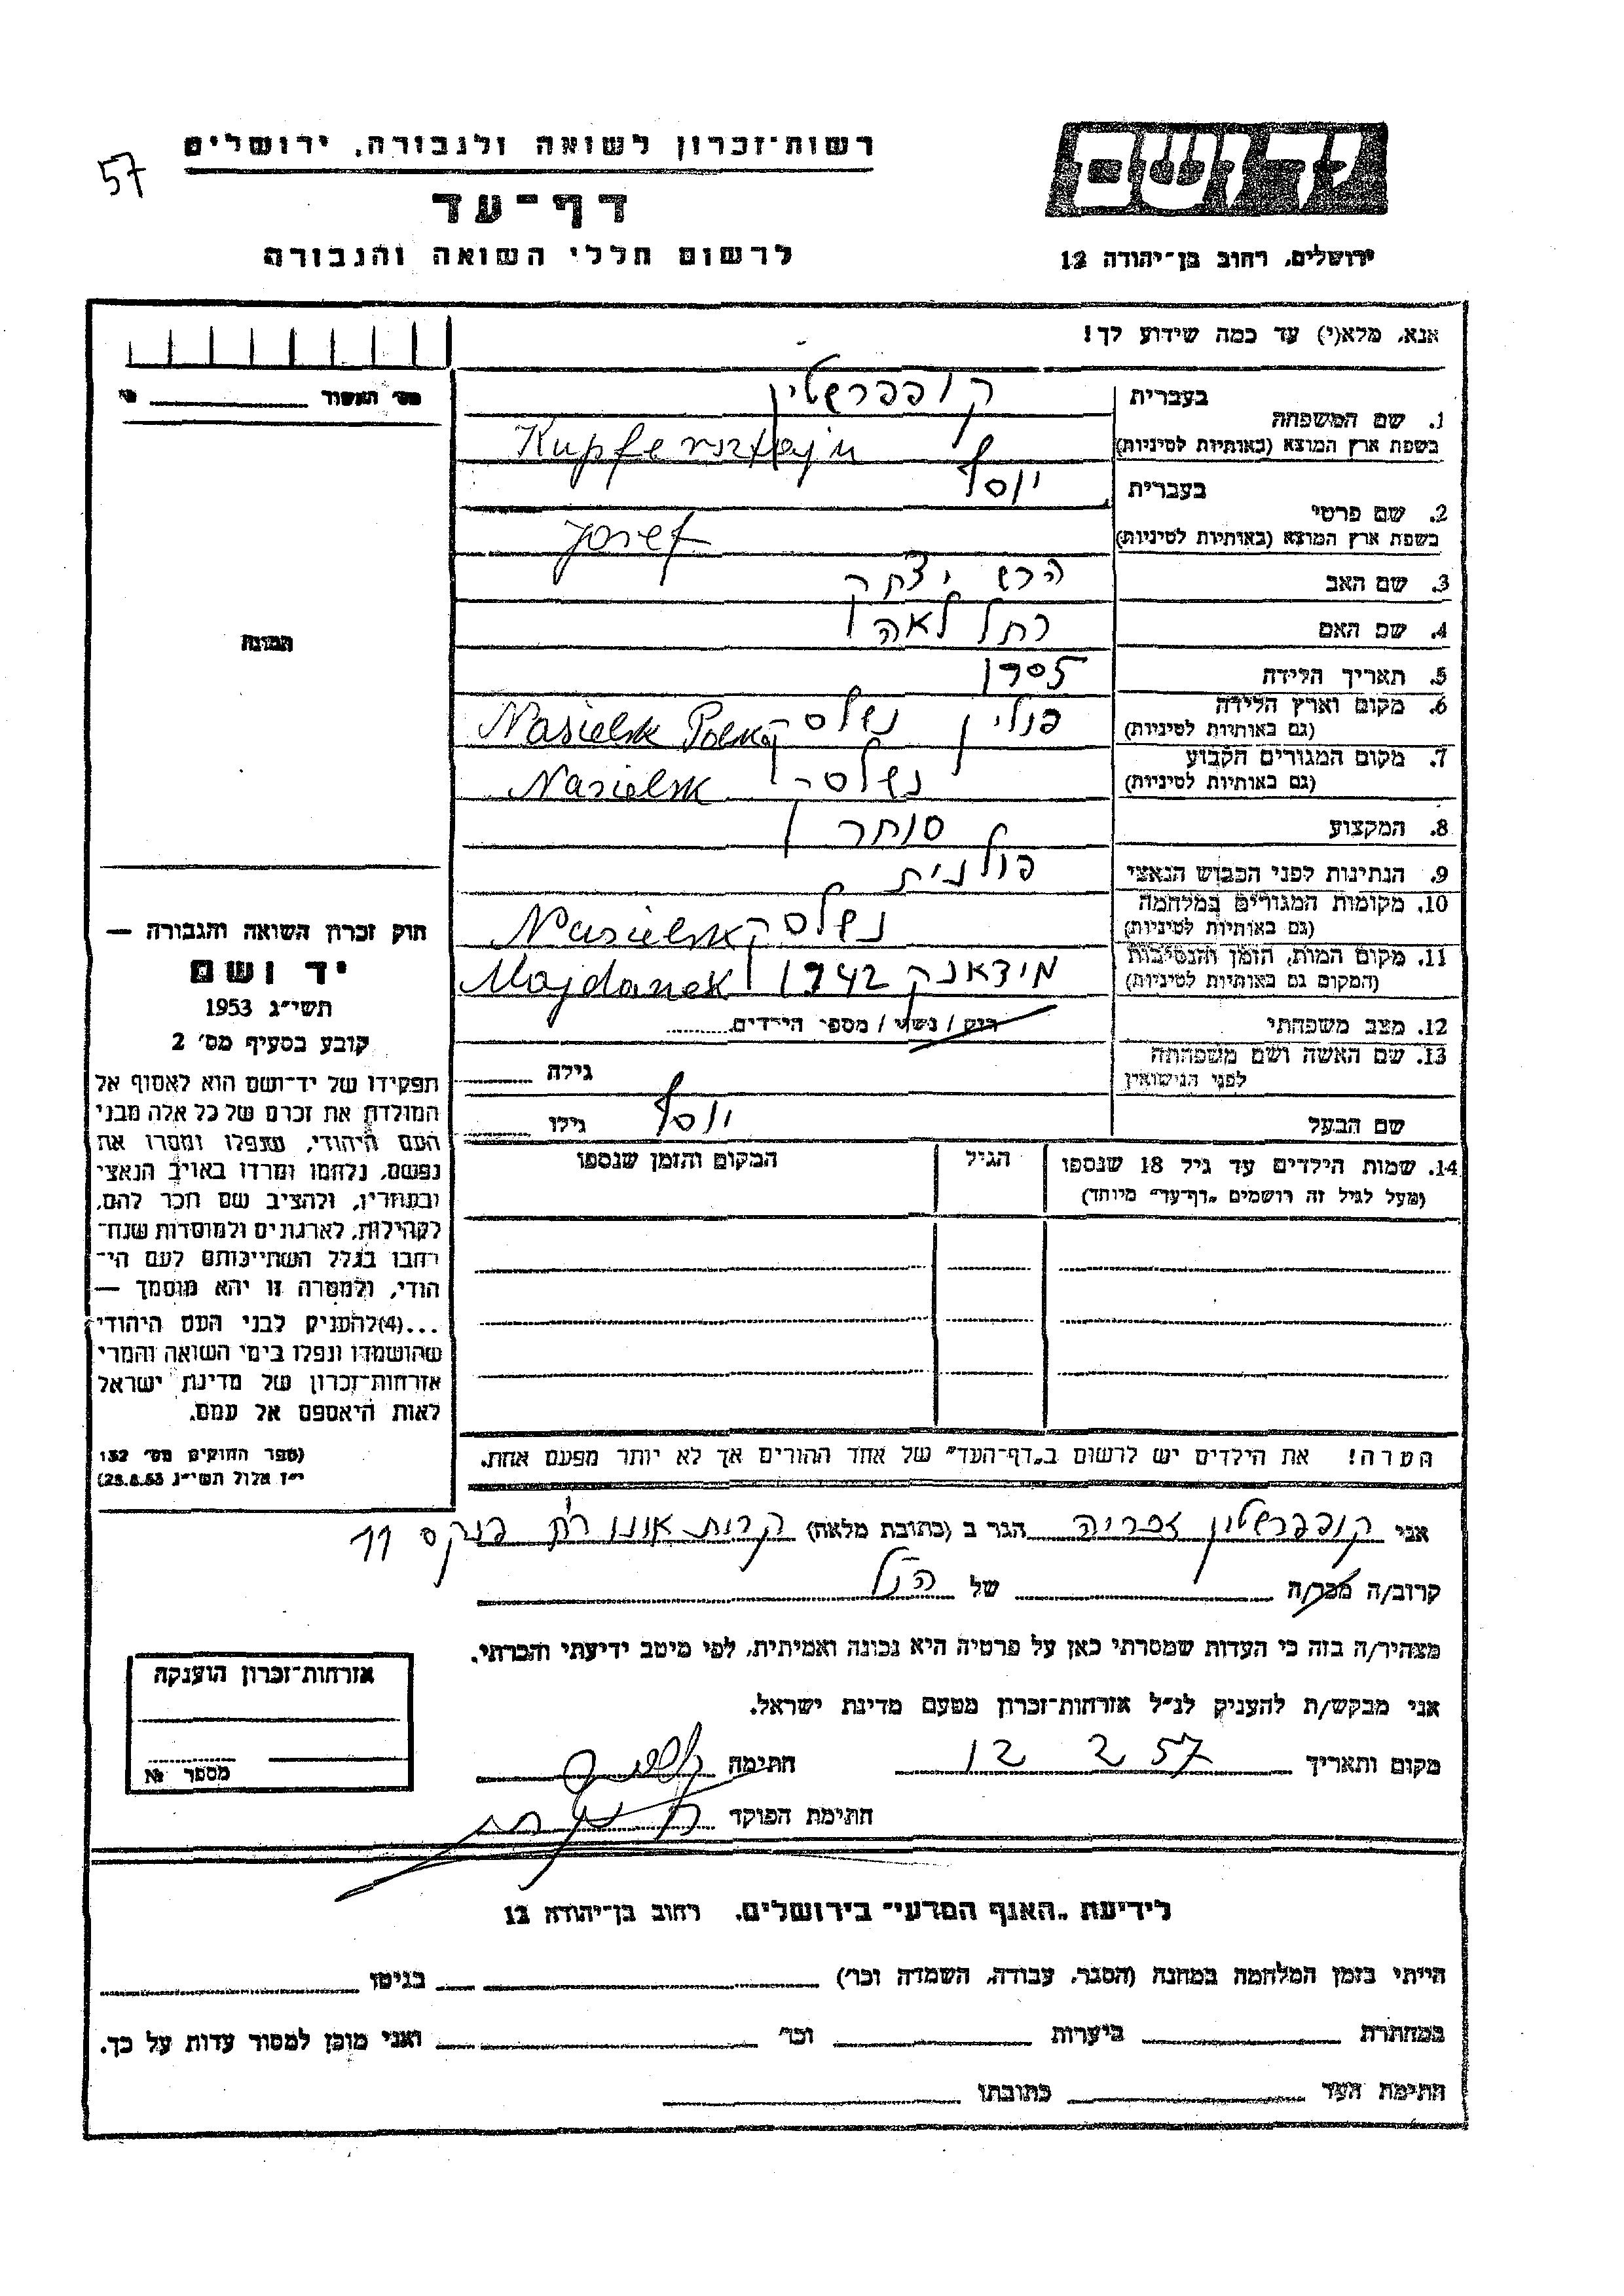 57
רשות־זכרון לשואה ולגבורה, ירושלים
דף־עד
לרשום חללי השואה והגבורה
יד ושם
ירושלים, רחוב בן־יהודה 12
אנא, מלא(י) עד כמה שידוע לך!
מס׳ האשור
1. שם המשפחה
בעברית קופפרשטין
בשפת ארץ המוצא (באותיות לטיניות) Kupfersztejn
2. שם פרטי
בעברית יוסף
בשפת ארץ המוצא (באותיות לטיניות) Josef
3. שם האב הרש יצחק
4. שם האם רחל לאה
5. תאריך הלידה 1905
6. מקום וארץ הלידה (גם באותיות לטיניות) פולין נשלסק Nasielsk Polska
7. מקום המגורים הקבוע (גם באותיות לטיניות) נשלסק Nasielsk
8. המקצוע סוחר
9. הנתינות לפני הכבוש הנאצי פולנית
10. מקומות המגורים במלחמה (גם באותיות לטיניות) נשלסק Nasielsk
11. מקום המות, הזמן והנסיבות (המקום גם באותיות לטיניות) מידאנק 1942 Majdanek
12. מצב משפחתי רווק / נשוי / מספר הילדים
13. שם האשה ושם משפחתה לפני הנישואין גילה
שם הבעל יוסף גילו
14. שמות הילדים עד גיל 18 שנספו הגיל המקום והזמן שנספו
(מעל לגיל זה רושמים „דף־עד” מיוחד)
הערה! את הילדים יש לרשום ב„דף־העד” של אחד ההורים אך לא יותר מפעם אחת.
התמונה
חוק זכרון השואה והגבורה —
יד ושם
תשי״ג 1953
קובע בסעיף מס׳ 2
תפקידו של יד־ושם הוא לאסוף אל
המולדת את זכרם של כל אלה מבני
העם היהודי, שנפלו ומסרו את
נפשם, נלחמו ומרדו באויב הנאצי
ובעוזריו, ולהציב שם וזכר להם,
לקהילות, לארגונים ולמוסדות שנח־
רבו בגלל השתייכותם לעם הי־
הודי, ולמטרה זו יהא מוסמך —
...(4)להעניק לבני העם היהודי
שהושמדו ונפלו בימי השואה והמרי
אזרחות־זכרון של מדינת ישראל
לאות היאספם אל עמם.
(ספר החוקים מס׳ 132
י״ז אלול תשי״ג 28.8.53)
אני קופפרשטין זכריה הגר ב (כתובת מלאה) קרית אונו רח׳ פנקס 11
קרוב/ה מכר/ה של הנ״ל
מצהיר/ה בזה כי העדות שמסרתי כאן על פרטיה היא נכונה ואמיתית, לפי מיטב ידיעתי והכרתי.
אני מבקש/ת להעניק לנ״ל אזרחות־זכרון מטעם מדינת ישראל.
מקום ותאריך 12 2 57 חתימה
חתימת הפוקד
אזרחות־זכרון הוענקה
מספר №
לידיעת „האגף המדעי” בירושלים, רחוב בן־יהודה 12
הייתי בזמן המלחמה במחנה (הסגר, עבודה, השמדה וכו׳) בגיטו
במחתרת ביערות וכו׳ ואני מוכן למסור עדות על כך.
חתימת העד כתובתו